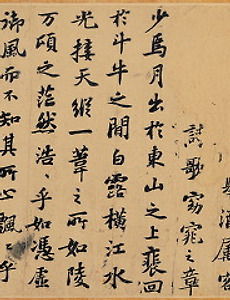 舉酒屬客
詩歌窈窕之章
少焉月出於東山之上裵回
於斗牛之間白露橫江水
光接天縱一葦之所如陵
万頃之茫然浩〻乎如憑虛
御風而不知其所止飄〻乎